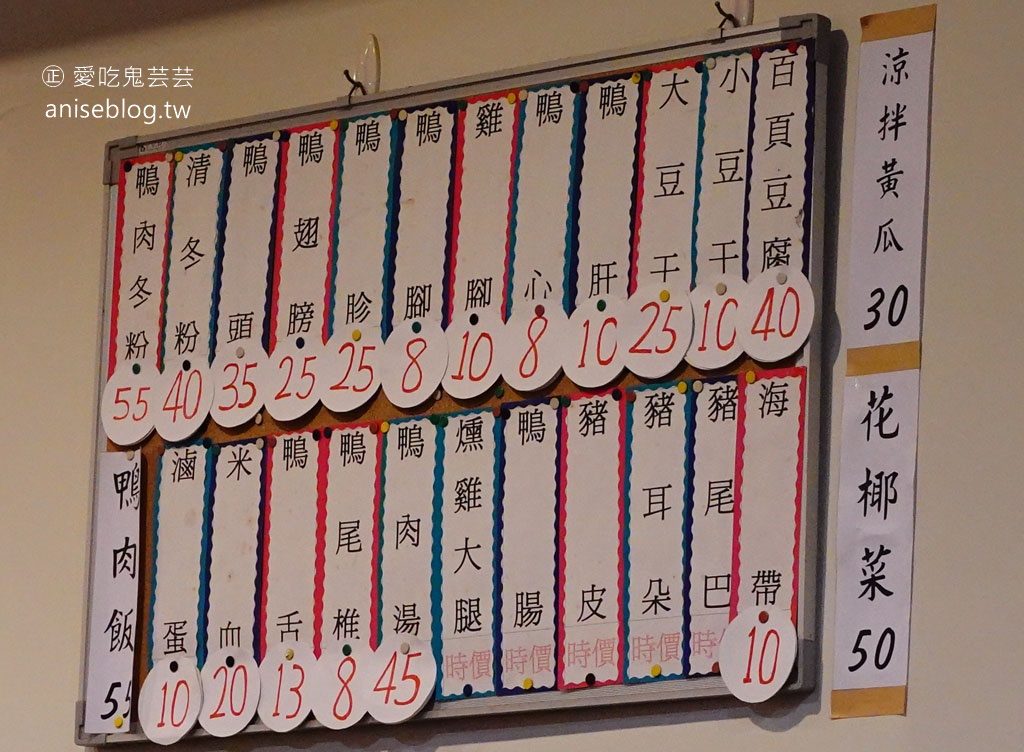 ㊣ 愛吃鬼芸芸
aniseblog.tw
鴨肉冬粉 55
清冬粉 40
鴨頭 35
鴨翅膀 25
鴨胗 25
鴨腳 8
雞腳 10
鴨心 8
鴨肝 10
大豆干 25
小豆干 10
百頁豆腐 40
鴨肉飯 55
滷蛋 10
米血 20
鴨舌 13
鴨尾椎 8
鴨肉湯 45
燻雞大腿 時價
鴨腸 時價
豬皮 時價
豬耳朵 時價
豬尾巴 時
海帶 10
涼拌黃瓜 30
花椰菜 50